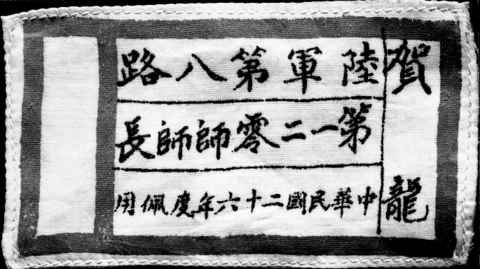 賀龍
陸軍第八路
第一二零師師長
中華民國二十六年度佩用